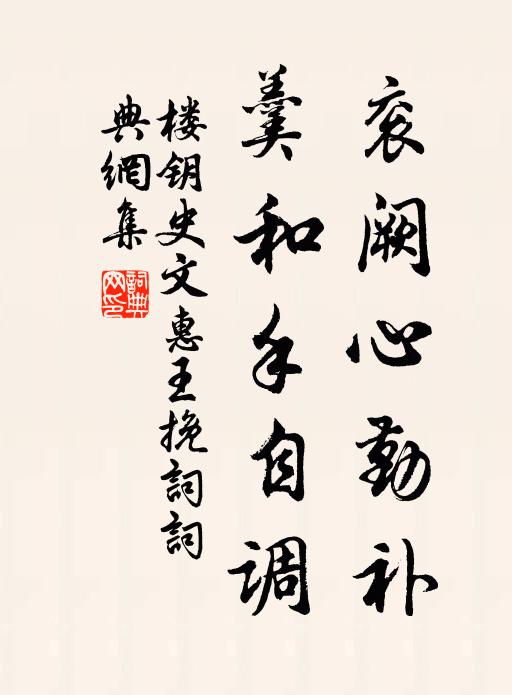 衮阙心勤补
羹和手自调
楼钥史文惠王挽词詞
典網集
詞典
网印